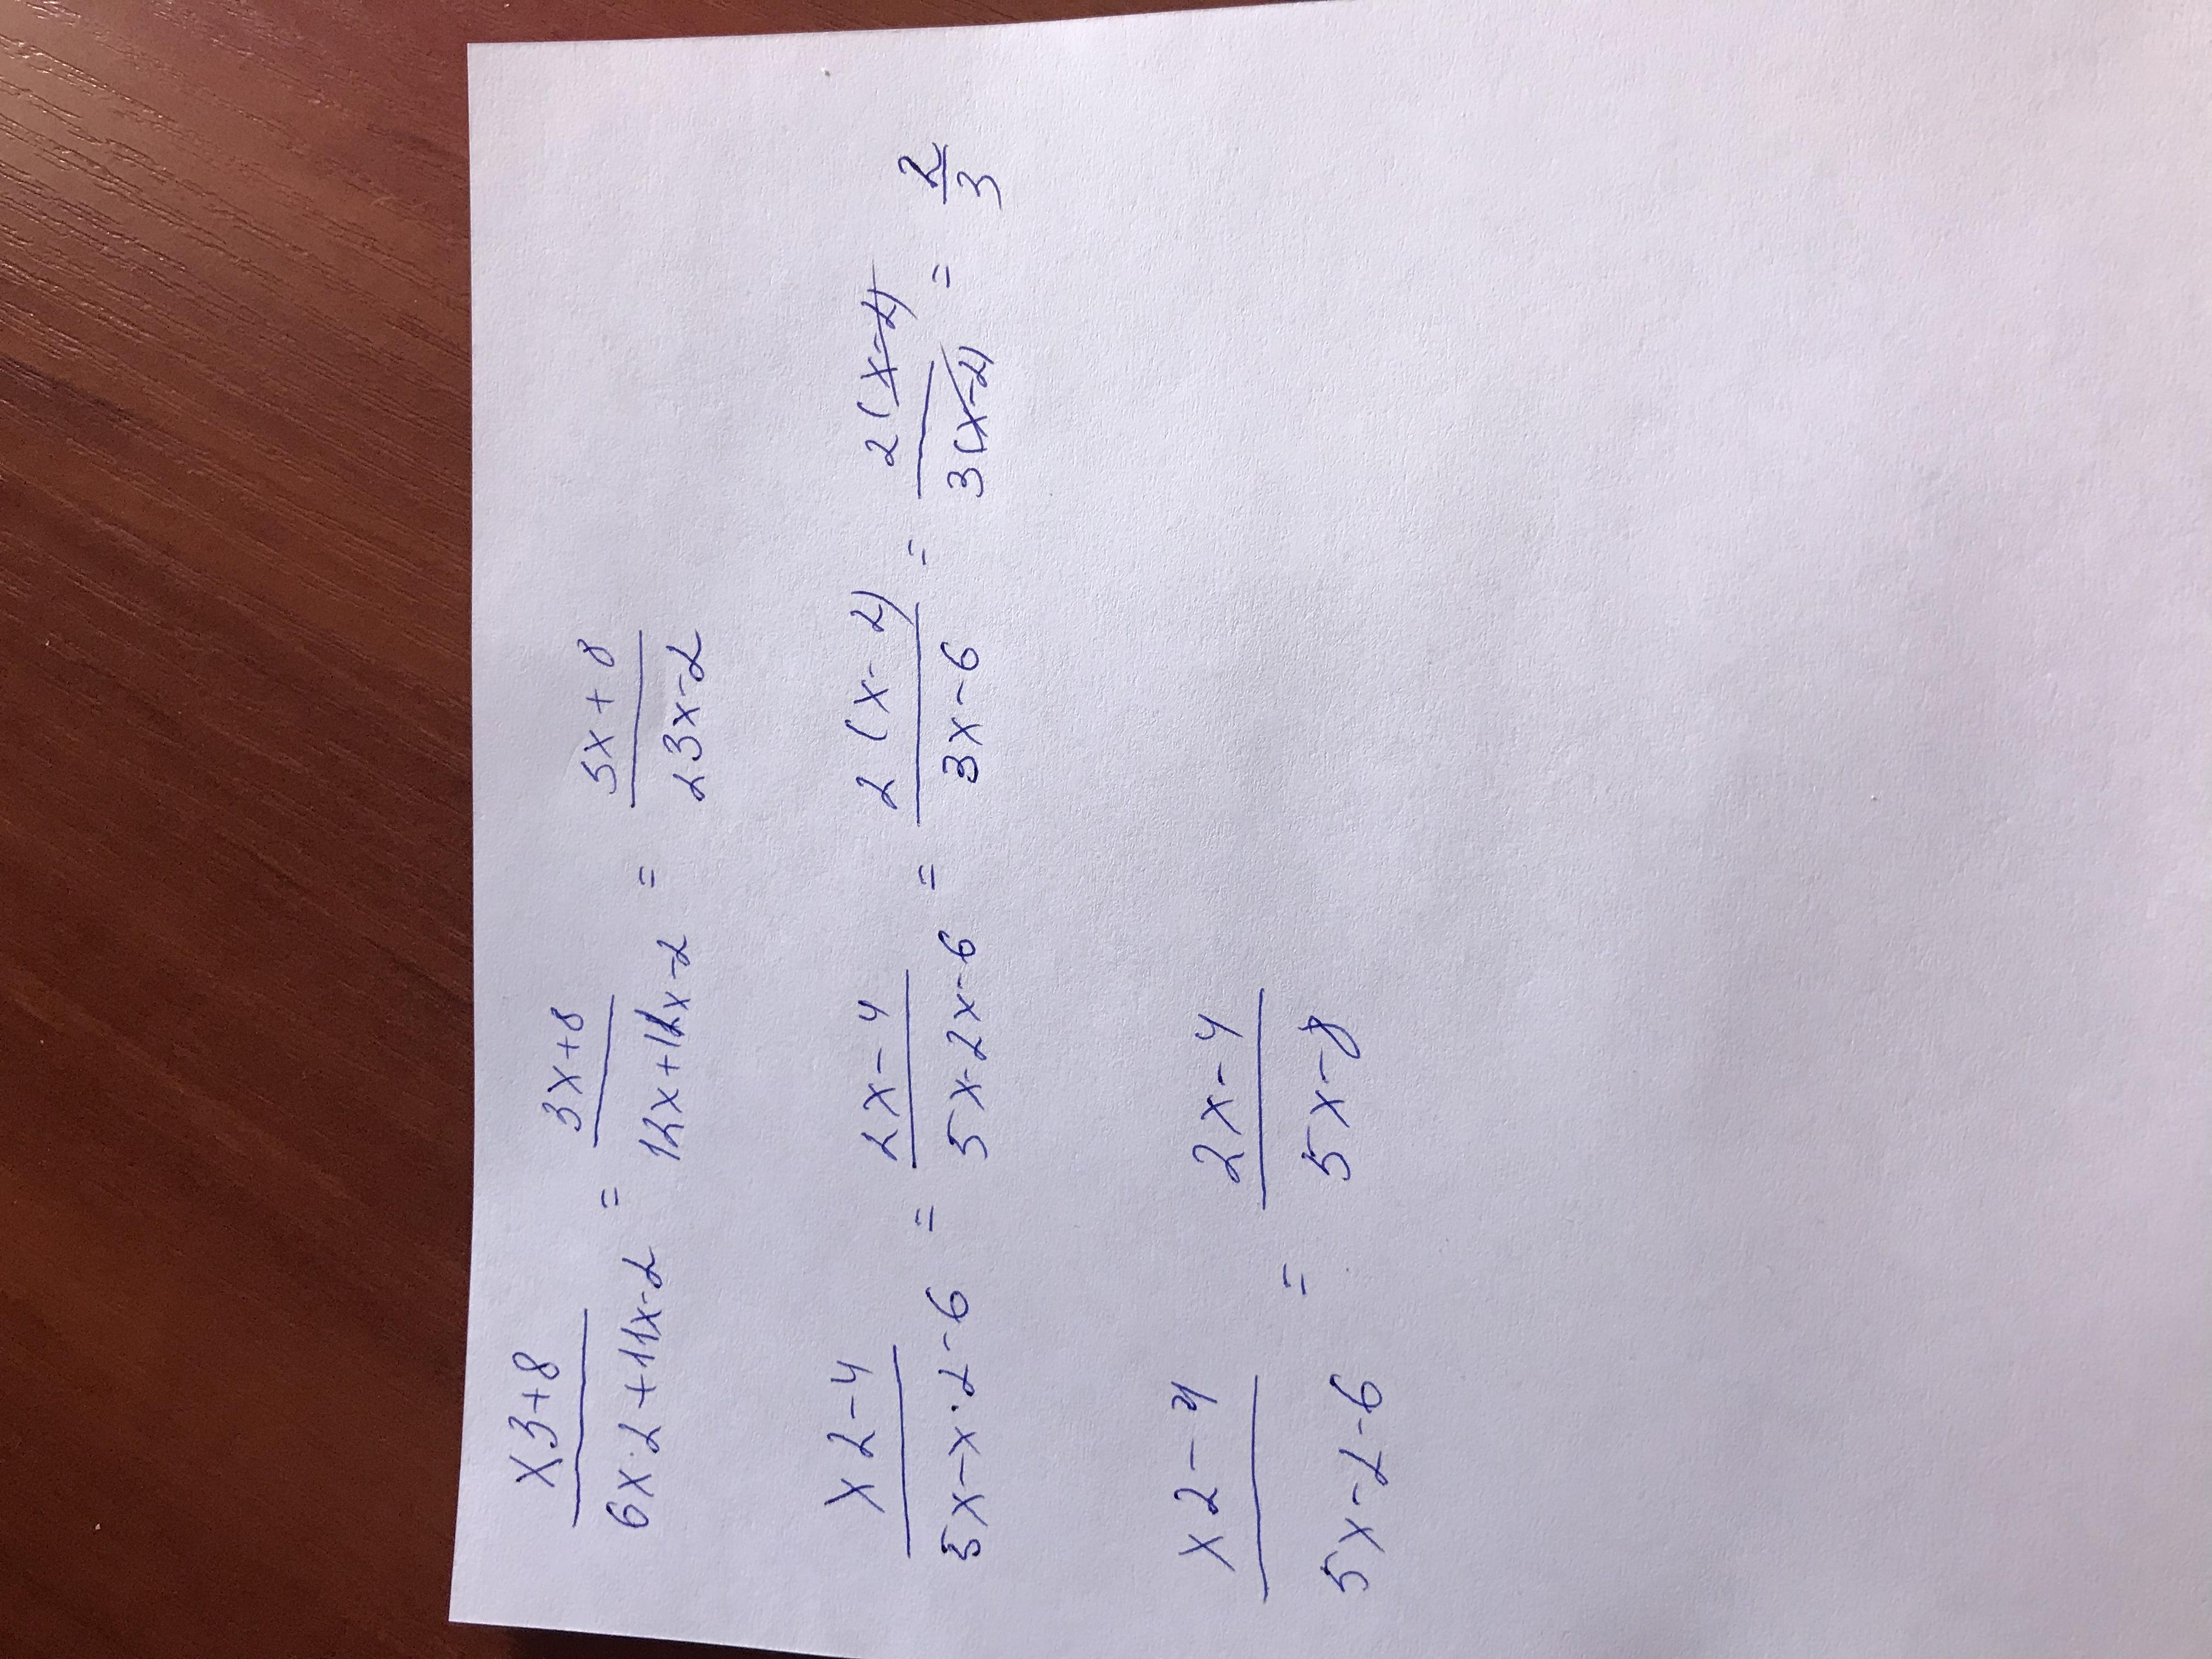 x3+8 / 6x·2+11x-2 = 3x+8 / 12x+11x-2 = 5x+8 / 23x-2
x2-4 / 5x-x·2-6 = 2x-4 / 5x-2x-6 = 2(x-2) / 3x-6 = 2(x-2) / 3(x-2) = 2/3
x2-4 / 5x-2-6 = 2x-4 / 5x-8